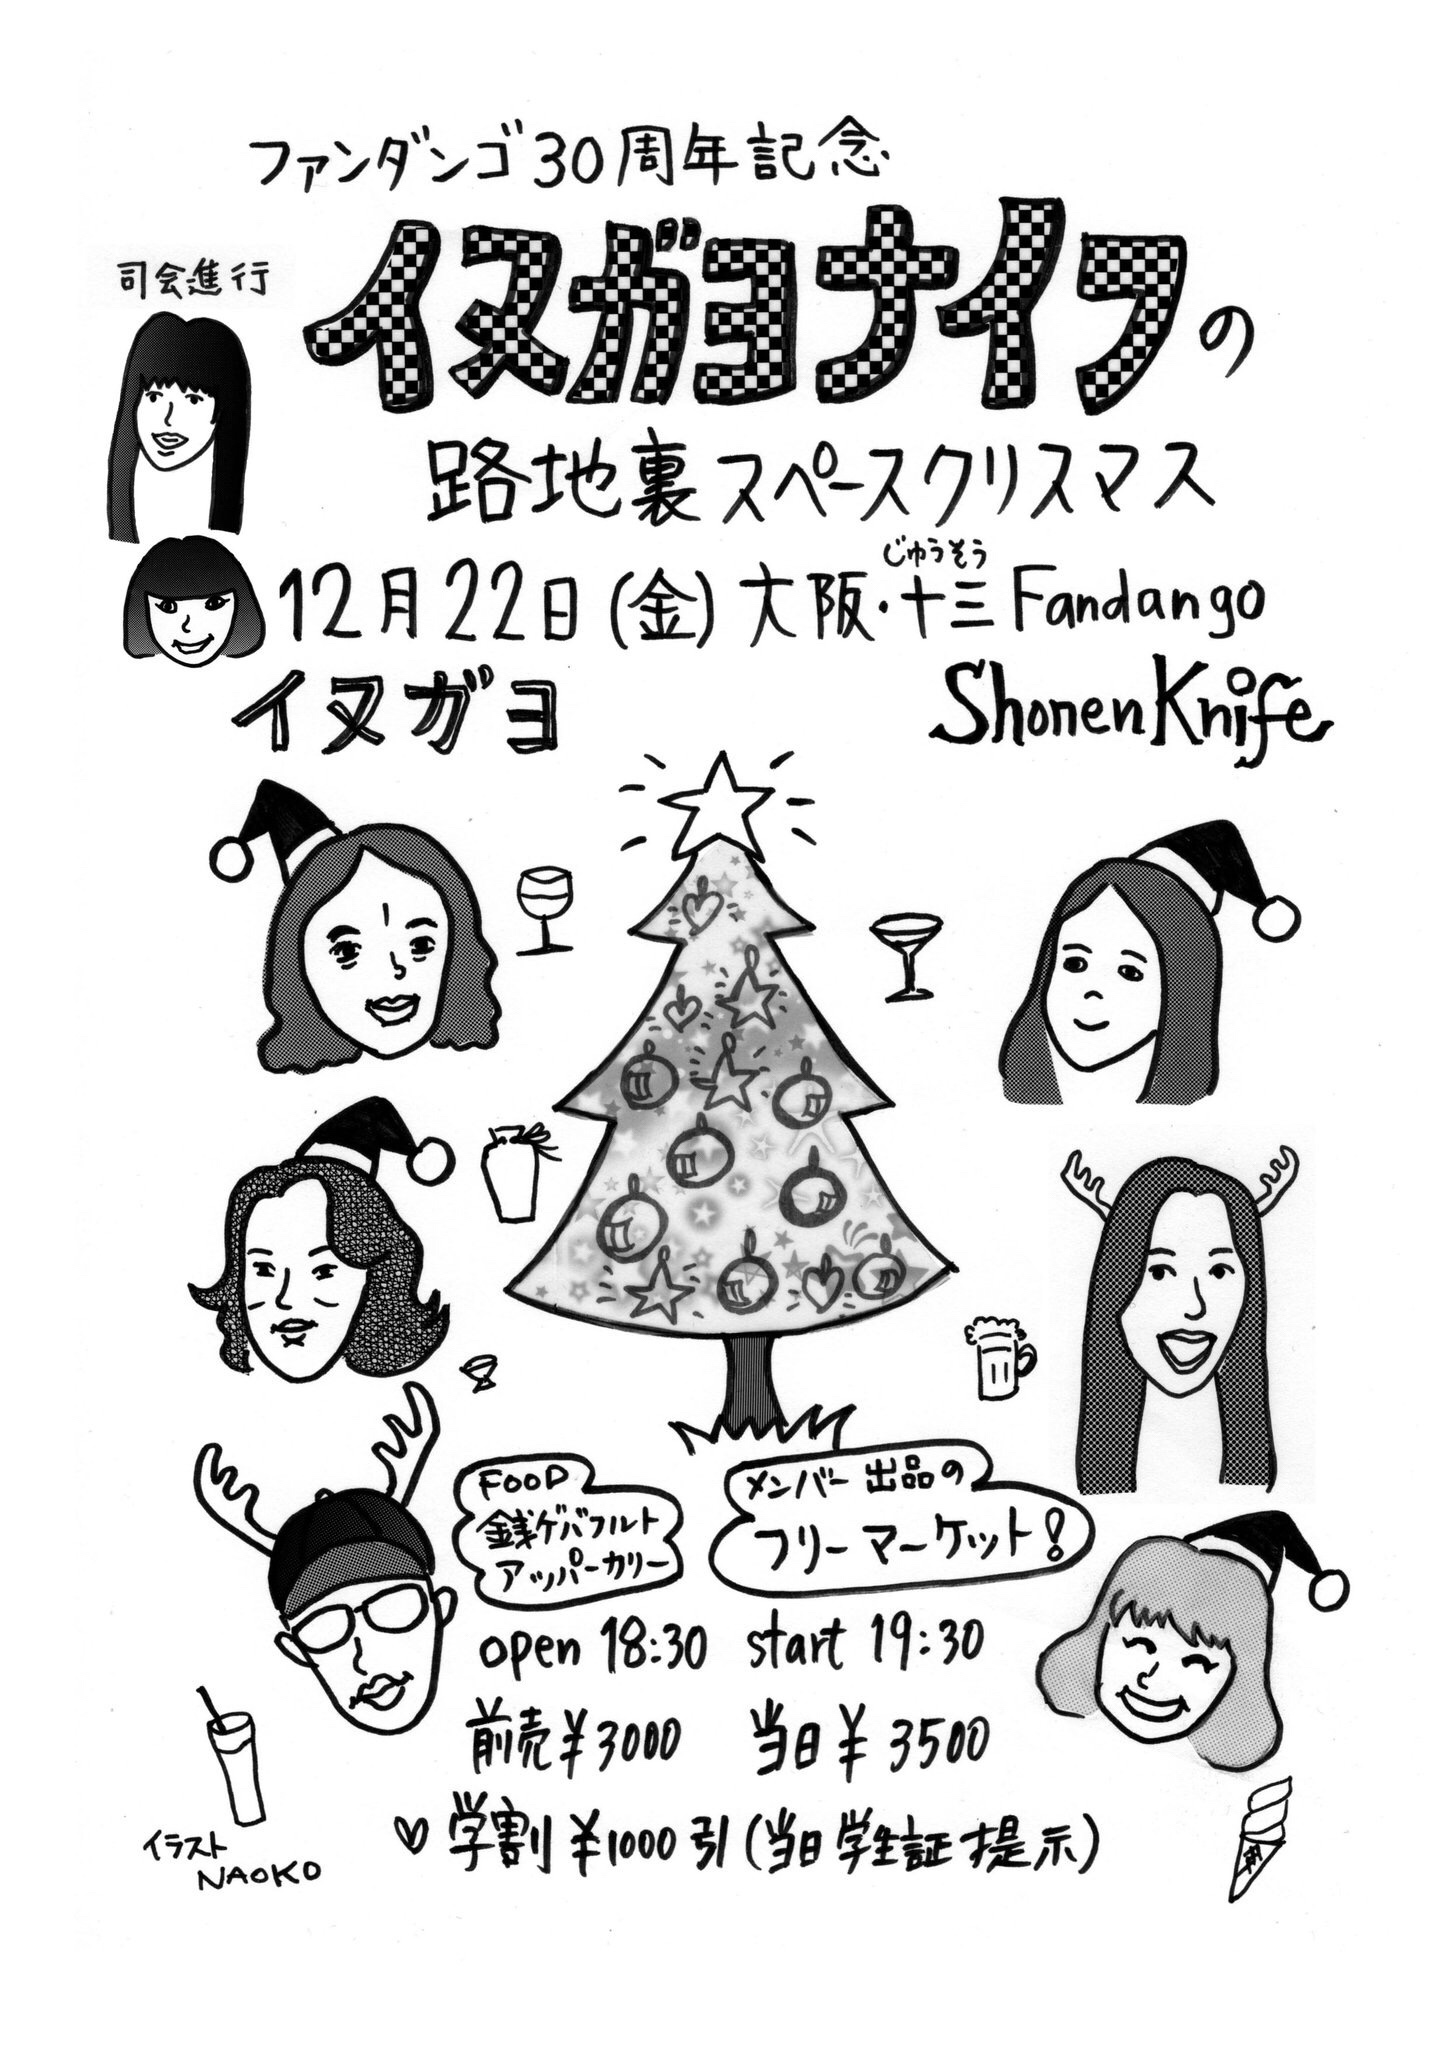 ファンダンゴ30周年記念
イヌガヨナイフの
司会進行
路地裏スペースクリスマス
じゅうそう
12月22日(金)大阪・十三Fandango
イヌガヨ
ShonenKnife
FOOD
銭ゲバフルト
アッパーカリー
メンバー出品の
フリーマーケット!
open 18:30 start 19:30
前売¥3000 当日¥3500
♡学割¥1000引(当日学生証提示)
イラスト
NAOKO